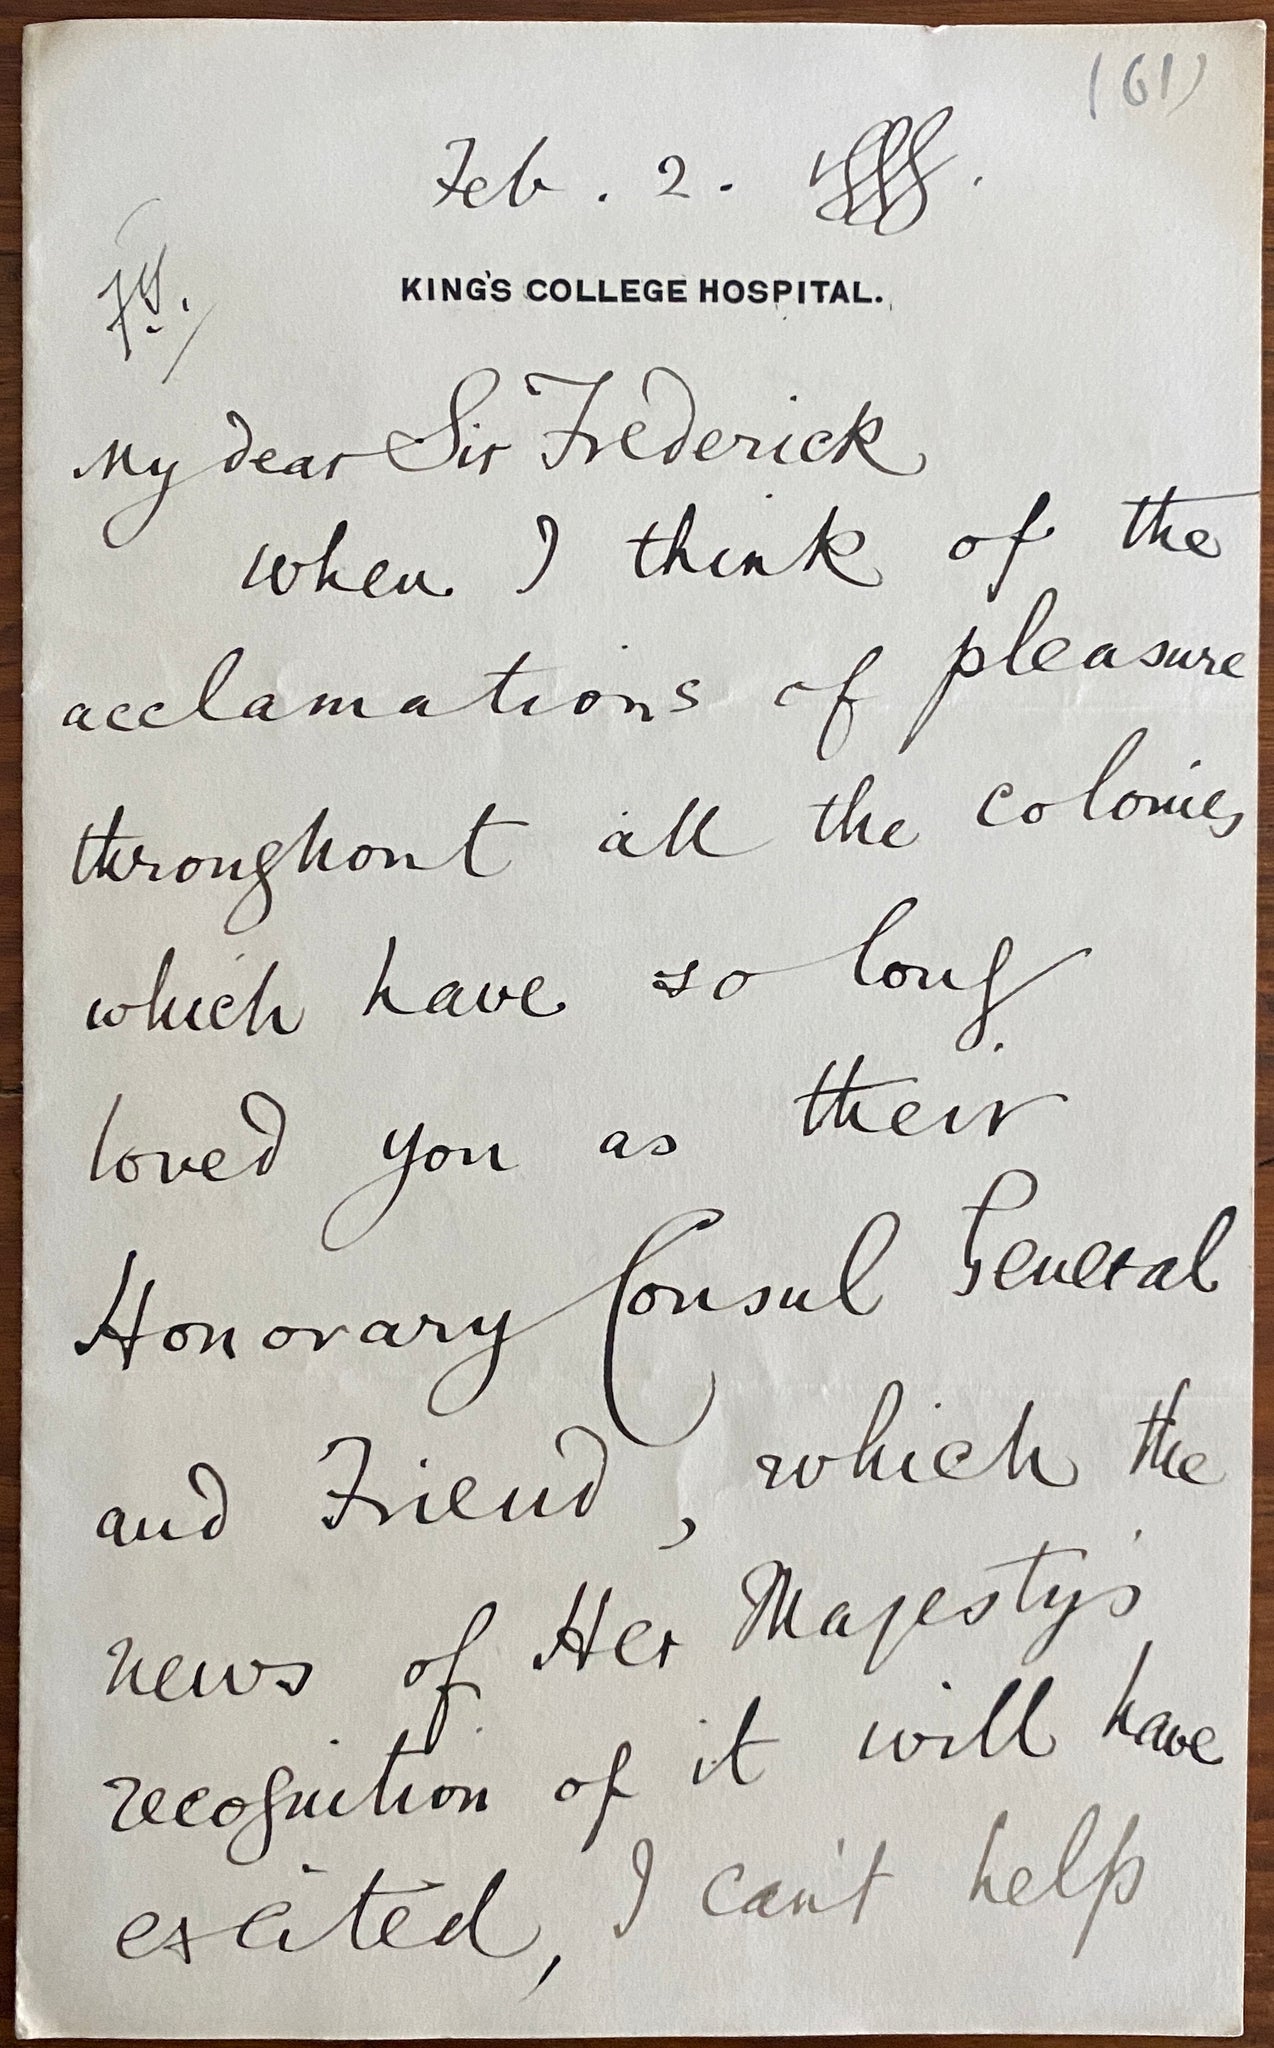 (61)
Feb. 2.
KING'S COLLEGE HOSPITAL.
My dear Sir Frederick
when I think of the
acclamations of pleasure
throughout all the colonies
which have so long
loved you as their
Honorary Consul General
and Friend, which the
news of Her Majesty's
recognition of it will have
excited, I can't help